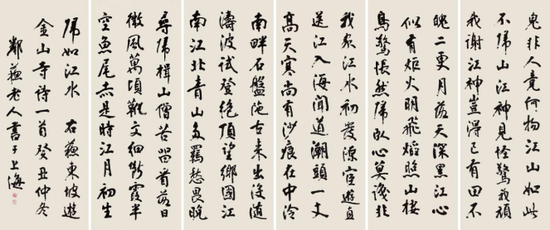 鬼非人竟何物江山如此
不歸山江神見怪驚我頑
我謝江神豈得已有田不
魄二更月落天深黑江心
似有炬火明飛焰照山棲
鳥驚悵然歸臥心莫識非
我家江水初發源宦遊直
送江入海聞道潮頭一丈
高天寒尚有沙痕在中泠
南畔石盤陀古來出沒隨
濤波試登絕頂望鄉國江
南江北青山多羈愁畏晚
尋歸楫山僧苦留看落日
微風萬頃靴文細斷霞半
空魚尾赤是時江月初生
歸如江水 右蘇東坡遊
金山寺詩一首癸丑仲冬
鄰蘇老人書于上海